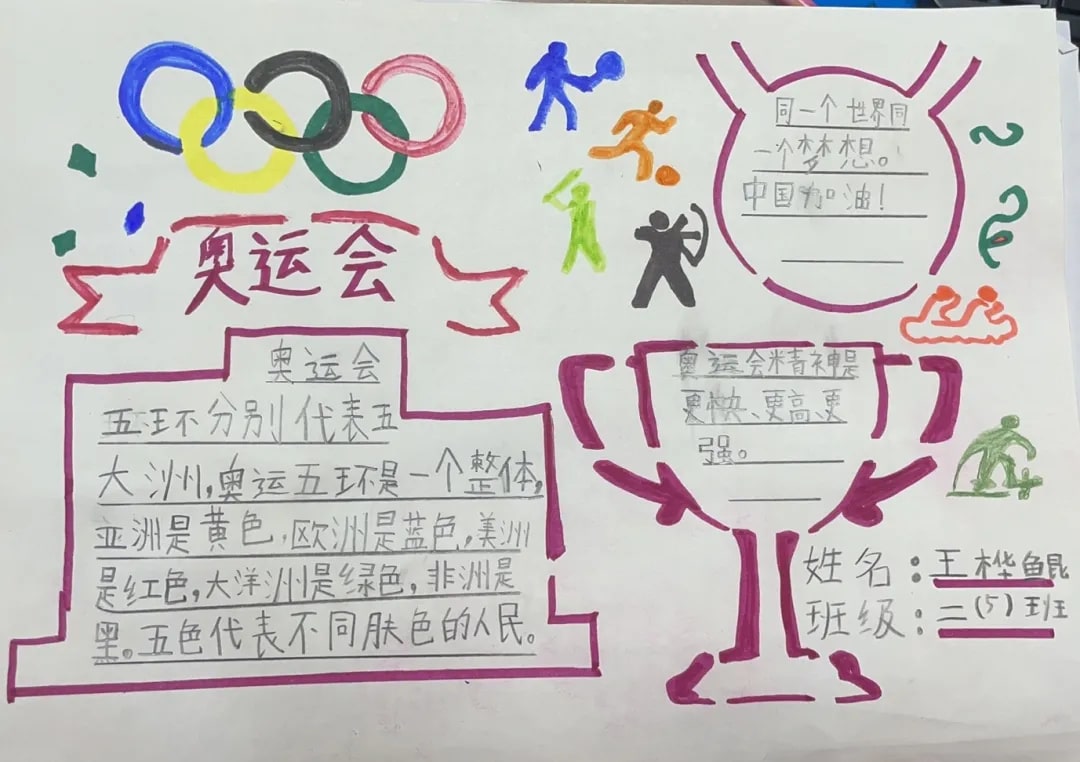 奥运会
奥运会
五环不分别代表五
大洲,奥运五环是一个整体,
亚洲是黄色,欧洲是蓝色,美洲
是红色,大洋洲是绿色,非洲是
黑。五色代表不同肤色的人民。
同一个世界同
一个梦想。
中国加油!
奥运会精神是
更快、更高、更
强。
姓名:王桦鲲
班级:二(5)班